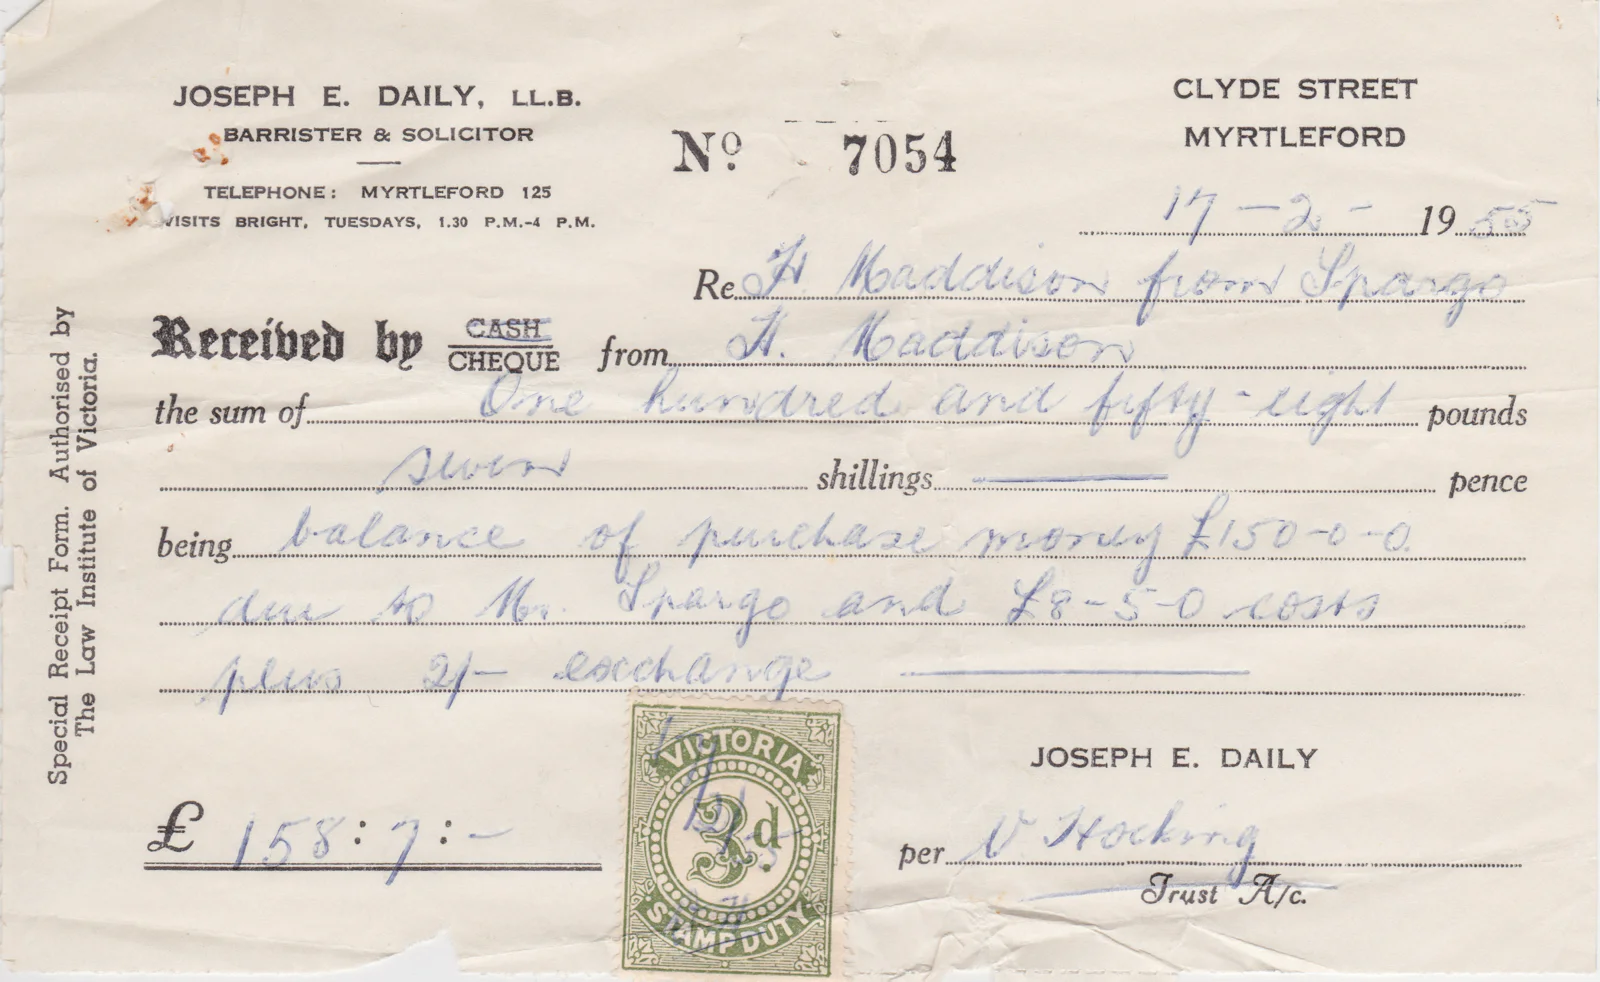 JOSEPH E. DAILY, LL.B.
BARRISTER & SOLICITOR
TELEPHONE: MYRTLEFORD 125
VISITS BRIGHT, TUESDAYS, 1.30 P.M.-4 P.M.
No. 7054
CLYDE STREET
MYRTLEFORD
17-2-1955
Re H. Maddison from Spargo
Received by CASH CHEQUE from H. Maddison
the sum of One hundred and fifty-eight pounds
seven shillings — pence
being balance of purchase money £150-0-0.
due to Mr. Spargo and £8-5-0 costs
plus 2/- exchange
JOSEPH E. DAILY
£ 158:7:-
per V Hocking
Trust A/c.
VICTORIA
3d
STAMP DUTY
Special Receipt Form. Authorised by
The Law Institute of Victoria.